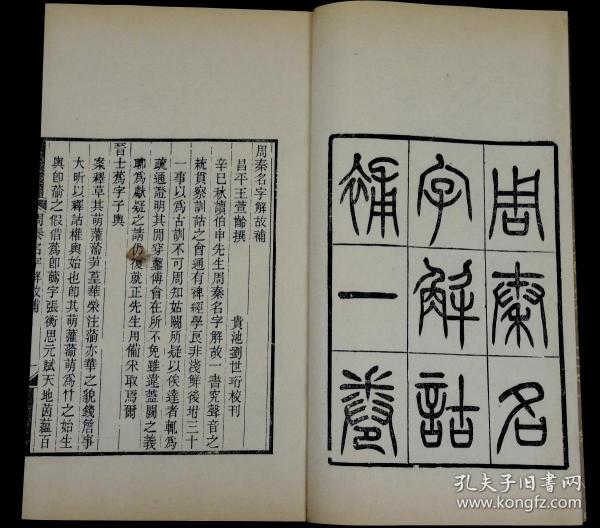 周秦名
字解詁
補一卷
周秦名字解故補
昌平王萱齡撰 貴池劉世珩校刊
辛巳秋讀伯申先生周秦名字解故一書究聲音之
統貫察訓詁之會通有裨經學良非淺鮮後坿三十
一事以爲古訓不可周知姑闕所疑以俟達者輒爲
疏通證明其閒穿鑿傅會在所不免雖違蓋闕之義
聊爲獻疑之請仍後就正先生用備采取焉爾
晉士蔿字子輿
案釋草其萌虇蕍芛葟華榮注蕍亦華之貌錢詹事
大昕以釋詁權輿始也卽其萌虇蕍萌爲竹之始生
輿卽蕍之假借蔿卽蘤字張衡思元賦天地菡蘊百
周秦名字解故補
孔夫子旧书网
www.kongfz.com